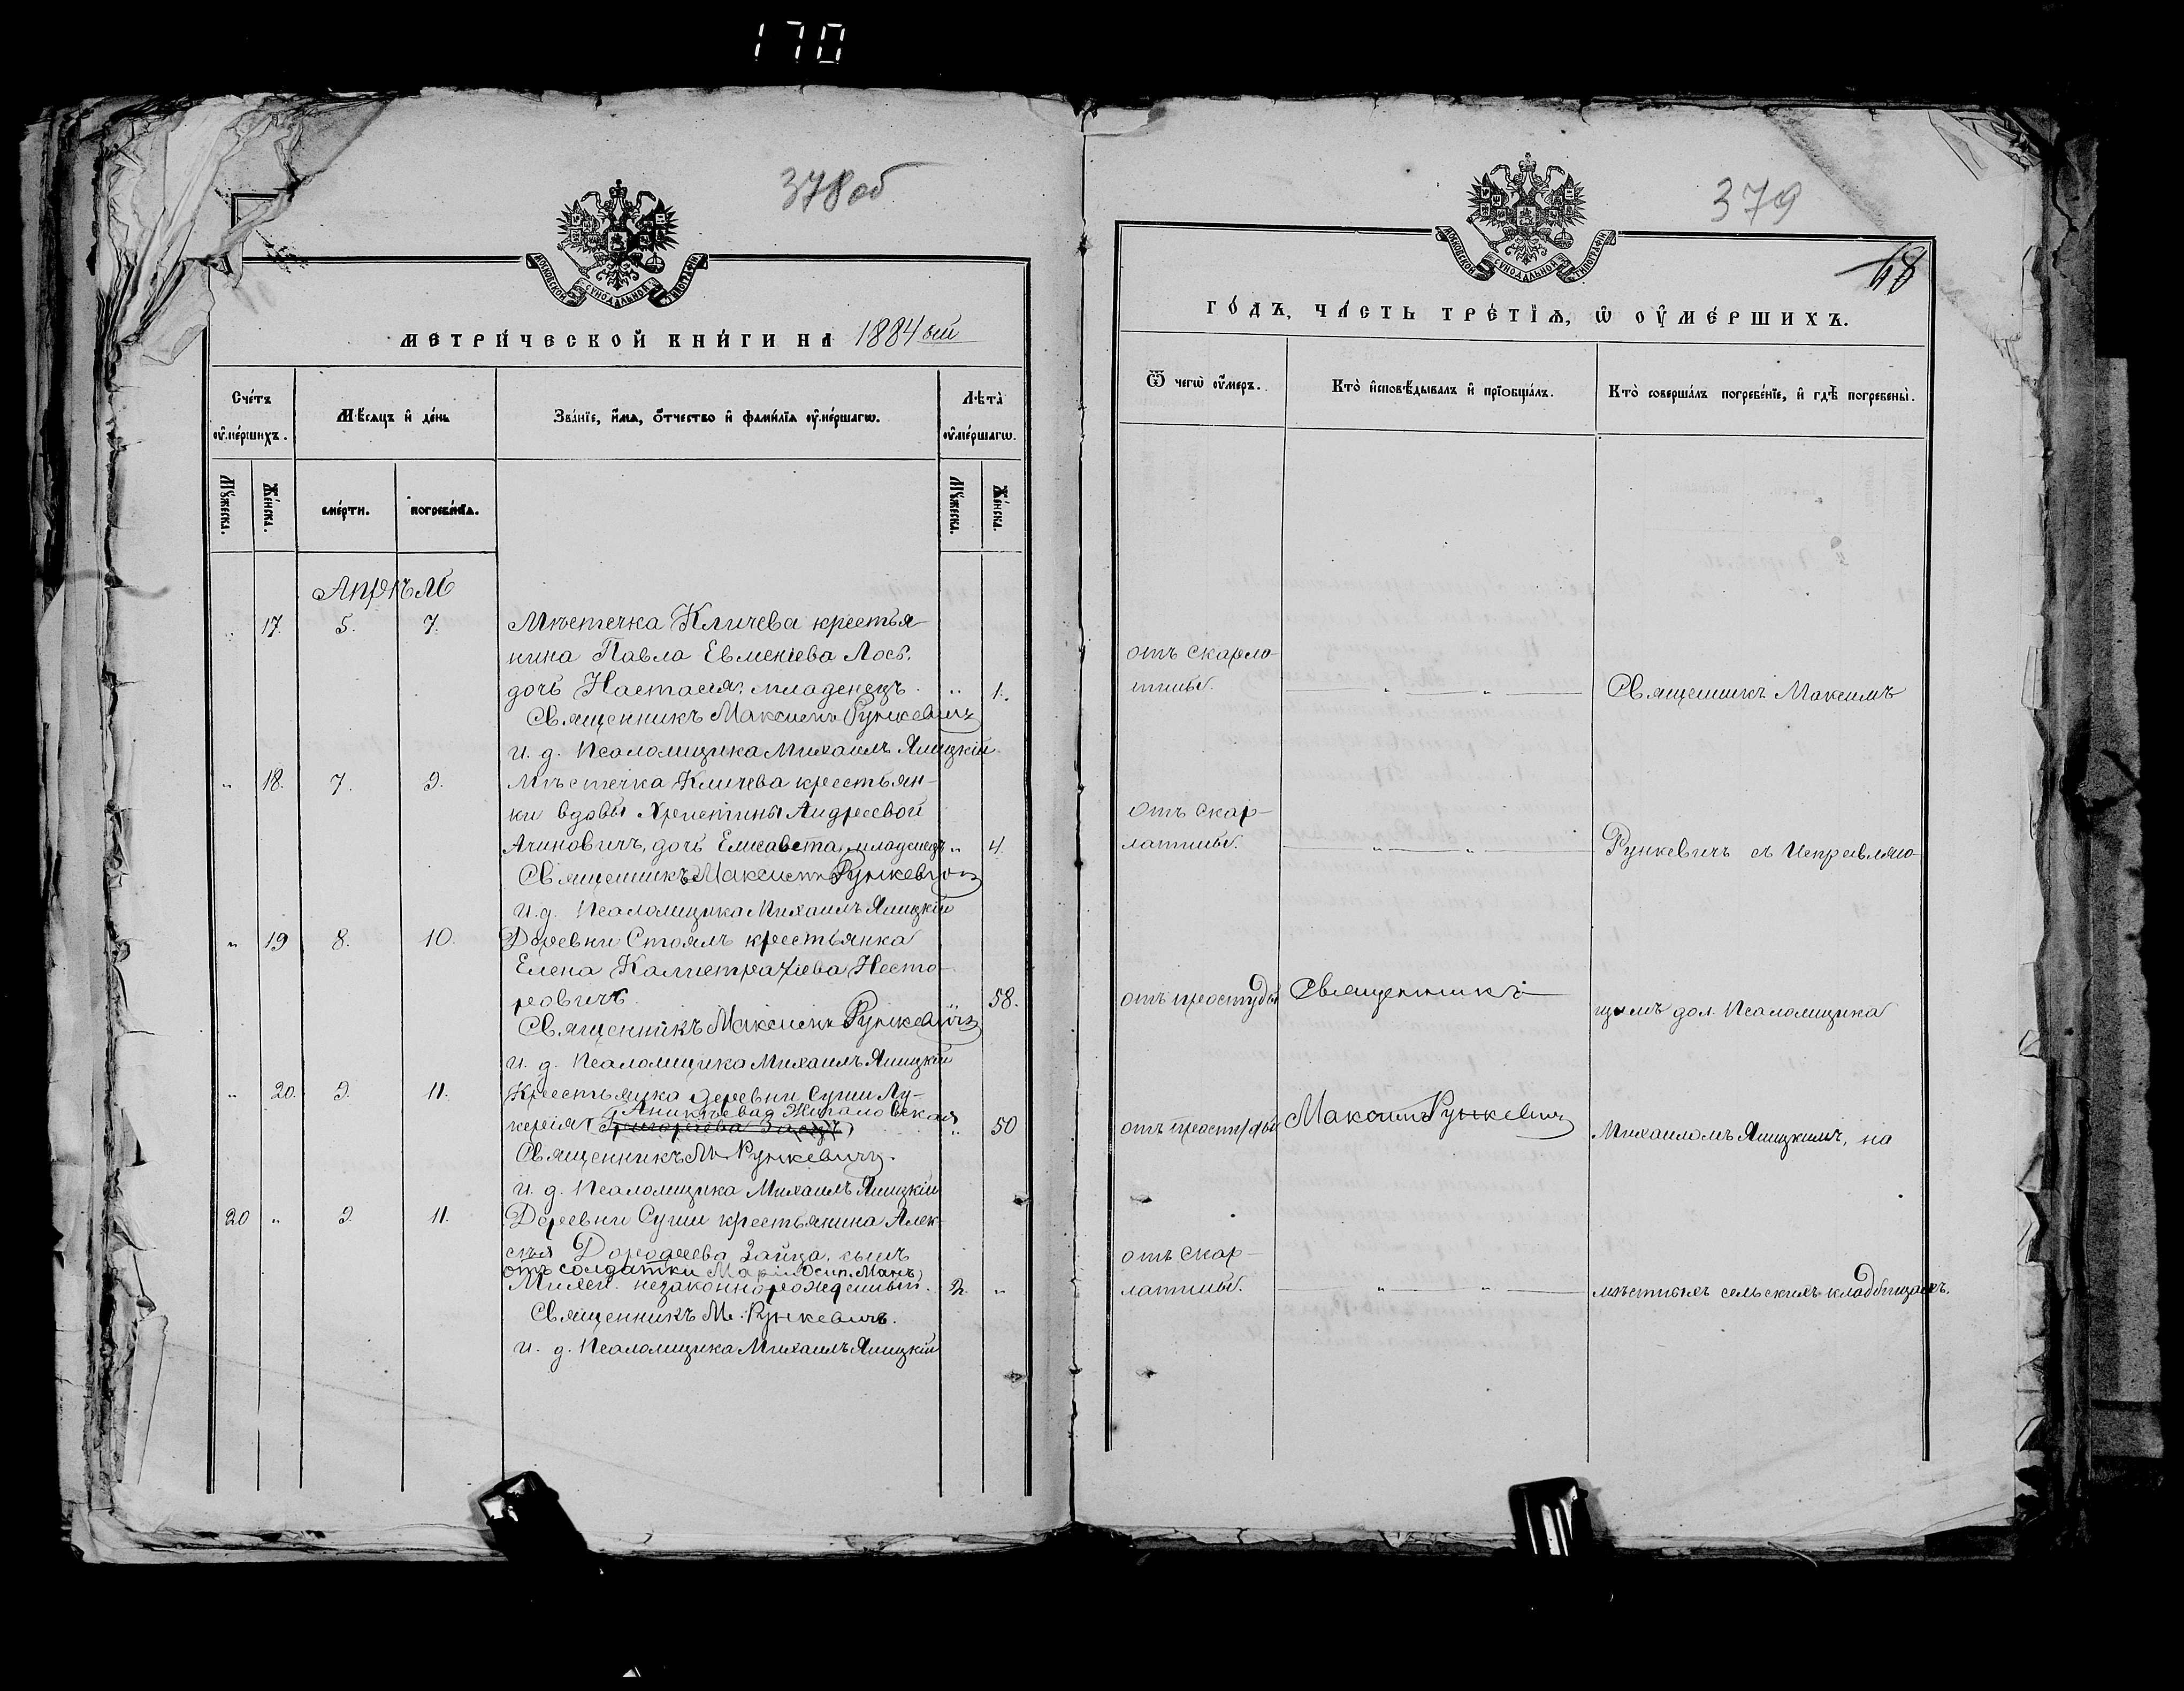 170
378об
МОСКОВСКОЙ СѴНОДАЛЬНОЙ ТИПОГРАФІИ
МЕТРИ́ЧЕСКОЙ КНИ́ГИ НА 1884 ый
Сче́тъ ᲂу҆ме́ршихъ.
Мѣ́сяцъ и҆ де́нь
Зва́нїе, и҆́мѧ, ѻ҆́тчество и҆ фами́лїѧ ᲂу҆ме́ршагѡ.
Лѣ́та ᲂу҆ме́ршагѡ.
Мꙋ́жеска.
Же́нска.
сме́рти.
погребе́нїѧ.
Мꙋ́жеска.
Же́нска.
Апрѣль
„ 17. 5. 7. Мѣстечка Кличева крестья-
нина Павла Евменіева Лось.
дочь Настасія младенецъ. „ 1.
Священникъ Максимъ Рункевичъ
И. д. Псаломщика Михаилъ Яницкій
„ 18. 7. 9. Мѣстечка Кличева крестьян-
ки вдовы Христины Андреевой
Ачиновичъ, дочь Елисавета, младенецъ „ 4.
Священникъ Максимъ Рункевичъ
И. д. Псаломщика Михаилъ Яницкій
„ 19 8. 10. Деревни Стоялъ крестьянка
Елена Калистратіева Несто-
ровичъ. „ 58.
Священникъ Максимъ Рункевичъ
И. д. Псаломщика Михаилъ Яницкій
„ 20. 9. 11. Крестьянка деревни Суши Лу-
керія „ 50
Священникъ М. Рункевичъ.
И. д. Псаломщика Михаилъ Яницкій
20 „ 9. 11. Деревни Суши крестьянина Алек-
сѣя Дорофеева Зайца, сынъ
отъ солдатки Маріи Осип. Манъ)
незаконнорожденный. 2. „
Священникъ М. Рункевичъ.
И. д. Псаломщика Михаилъ Яницкій
379
68
МОСКОВСКОЙ СѴНОДАЛЬНОЙ ТИПОГРАФІИ
ГО́ДЪ, ЧА́СТЬ ТРЕ́ТЇѦ, Ѡ҆ ОУ҆МЕ́РШИХЪ.
Ѿ чегѡ̀ ᲂу҆́меръ.
Кто̀ и҆сповѣ́дывалъ и҆ прїобща́лъ.
Кто̀ соверша́лъ погребе́нїе, и҆ гдѣ̀ погребены̀.
отъ скарла-
тины. „ „ Священникъ Максимъ
отъ скар-
латины. „ „ Рункевичъ съ Исправляю-
отъ простуды Священникъ
щимъ дол. Псаломщика
отъ простуды Максимъ Рункевичъ
Михаиломъ Яницкимъ, на
отъ скар-
латины. „ „ мѣстныхъ сельскихъ кладбищахъ.